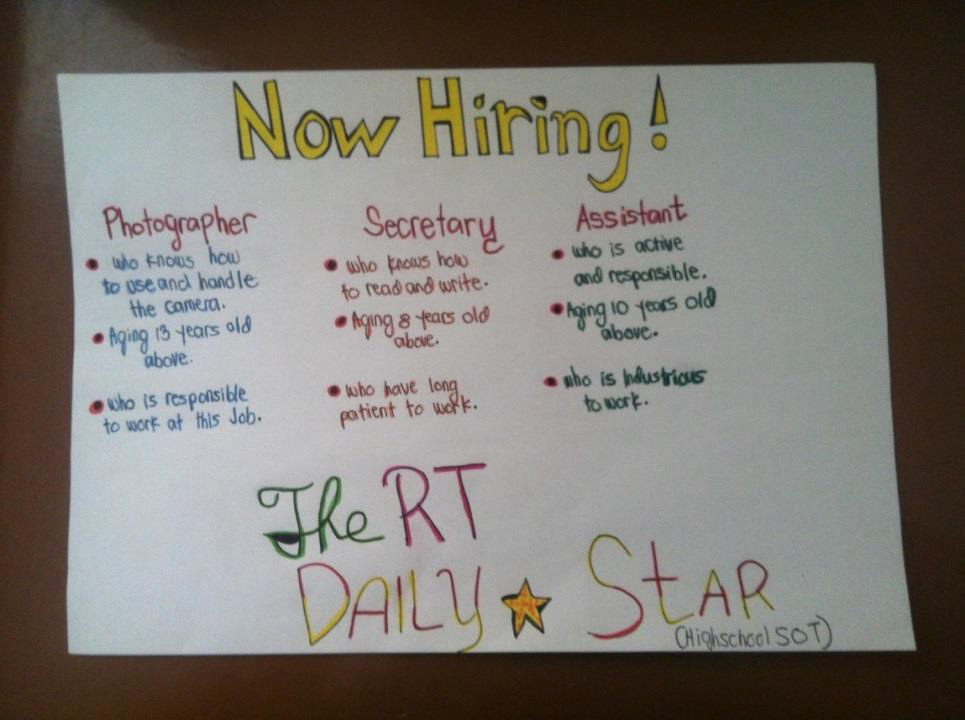 Now Hiring!
Photographer
• who knows how
to use and handle
the camera.
• Aging 13 years old
above.
• who is responsible
to work at this Job.
Secretary
• who knows how
to read and write.
• Aging 8 years old
above.
• who have long
patient to work.
Assistant
• who is active
and responsible.
• Aging 10 years old
above.
• who is Industrious
to work.
The RT
DAILY STAR
(Highschool SOT)